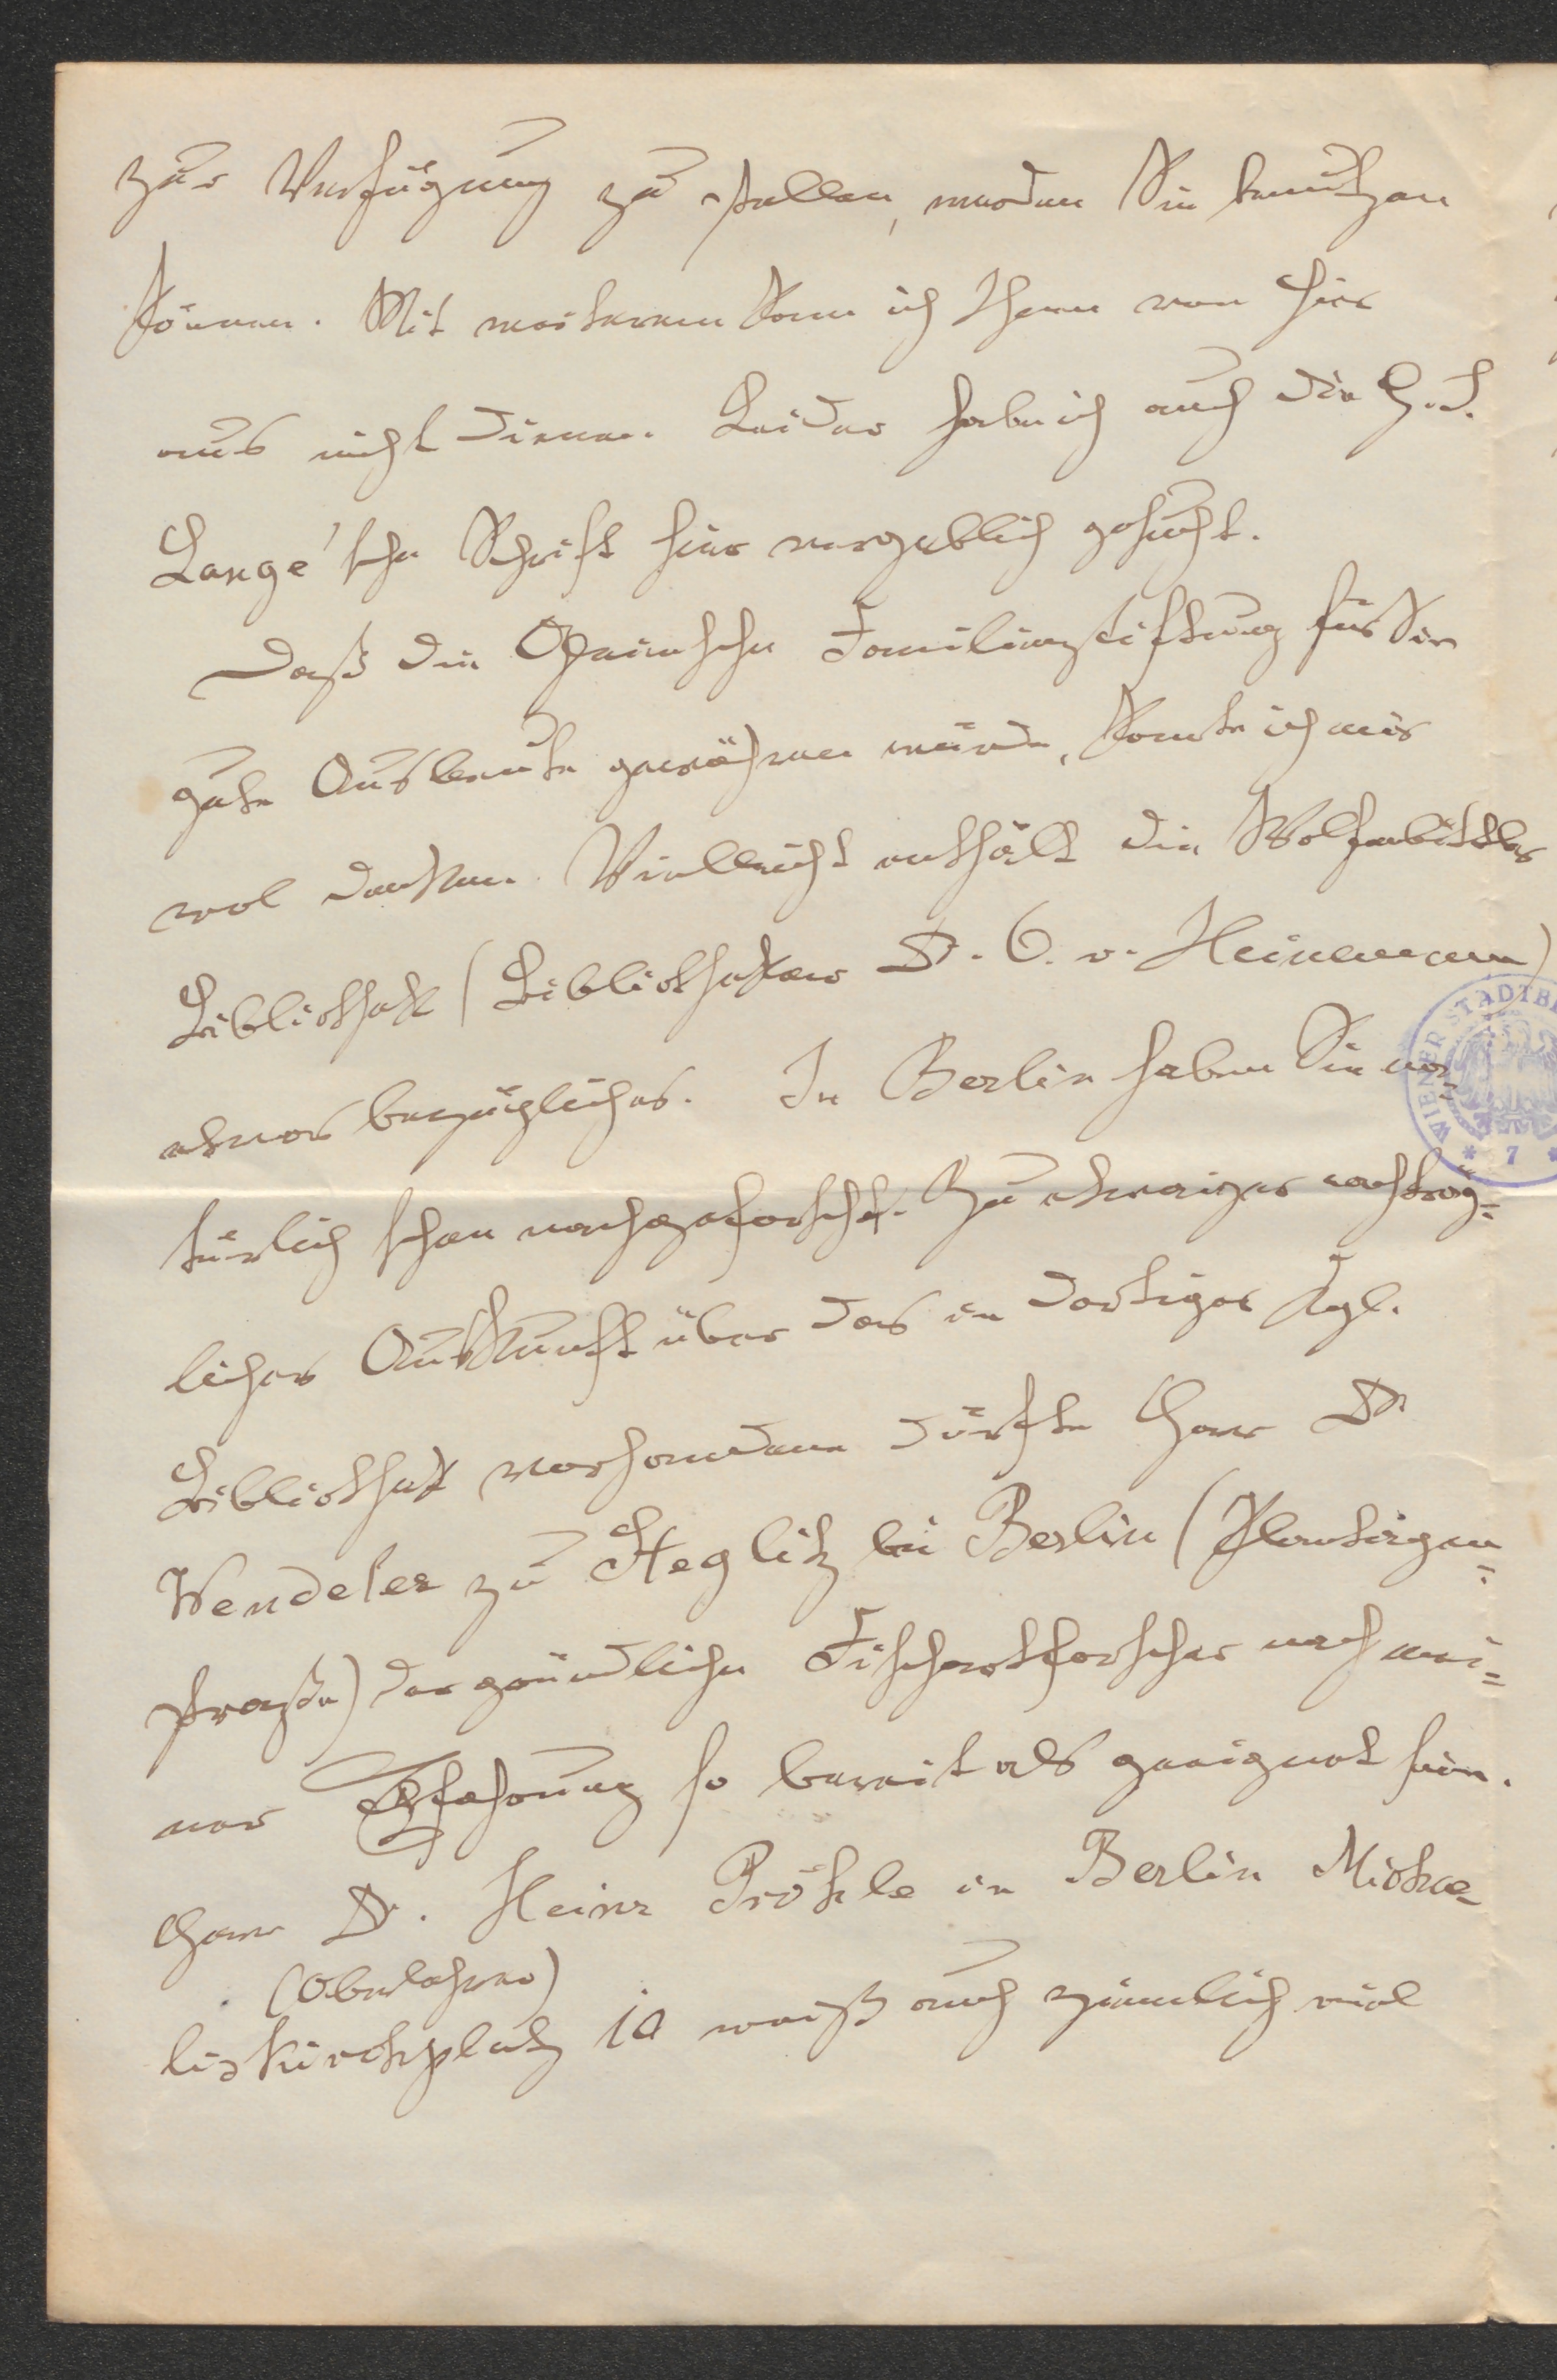 zur Verfügung zu stellen, werden Sie benutzen
können. Mit weiterem kann ich Ihnen von hier
aus nicht dienen. Leider habe ich auch die G. S.
Lange'sche Schrift hier vergeblich gesucht.
Daß die Gleimsche Familienstiftung für Sie
gute Ausbeute gewähren würde, konnte ich mir
wol denken. Vielleicht enthält die Wolfenbüttler
Bibliothek (Bibliothekar Dr. O. v. Heinemann)
etwas bezügliches. In Berlin haben Sie na-
türlich schon nachgeforscht. Zu etwaiger nachträg-
licher Auskunft über das in dortiger Kgl.
Bibliothek vorhandene dürfte Herr Dr
Wendeler zu Steglitz bei Berlin (Albrecht-
straße) der gründliche Fischartforscher nach mei-
ner Erfahrung so bereit als geeignet sein.
Herr Dr. Heinr Pröhle in Berlin Michae-
(Oberlehrer)
liskirchplatz 10 weiß auch ziemlich viel
WIENER STADTB
* 7 *